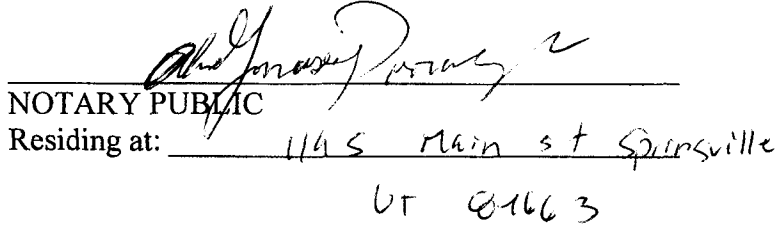 NOTARY PUBLIC
Residing at: 119 S Main st Springville
UT 84663